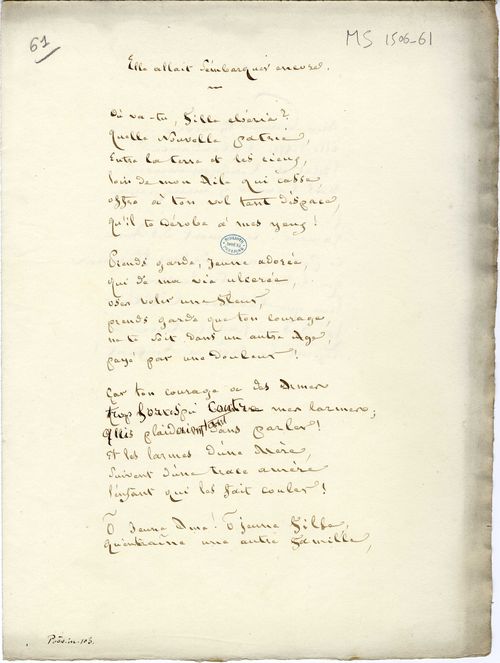 61
MS 1506-61
Elle allait s'embarquer encore.
Où va-tu, fille chérie ?
Quelle nouvelle patrie,
Entre la terre et les cieux,
loin de mon Aile qui casse
offre à ton vol tant d'espace,
qu'il te dérobe à mes yeux !
Prends garde, jeune adorée,
qui de ma vie ulcérée,
oses voler une fleur,
prends garde que ton courage,
ne te soit dans un autre Age,
payé par une douleur !
Car ton courage a des Armes
trop fortes contre mes larmes ;
qui plaidaient sans parler !
Et les larmes d'une Mère,
Suivent d'une trace amère
l'enfant qui les fait couler !
Ô jeune Ame ! Ô jeune fille,
qu'entraîne une autre famille,